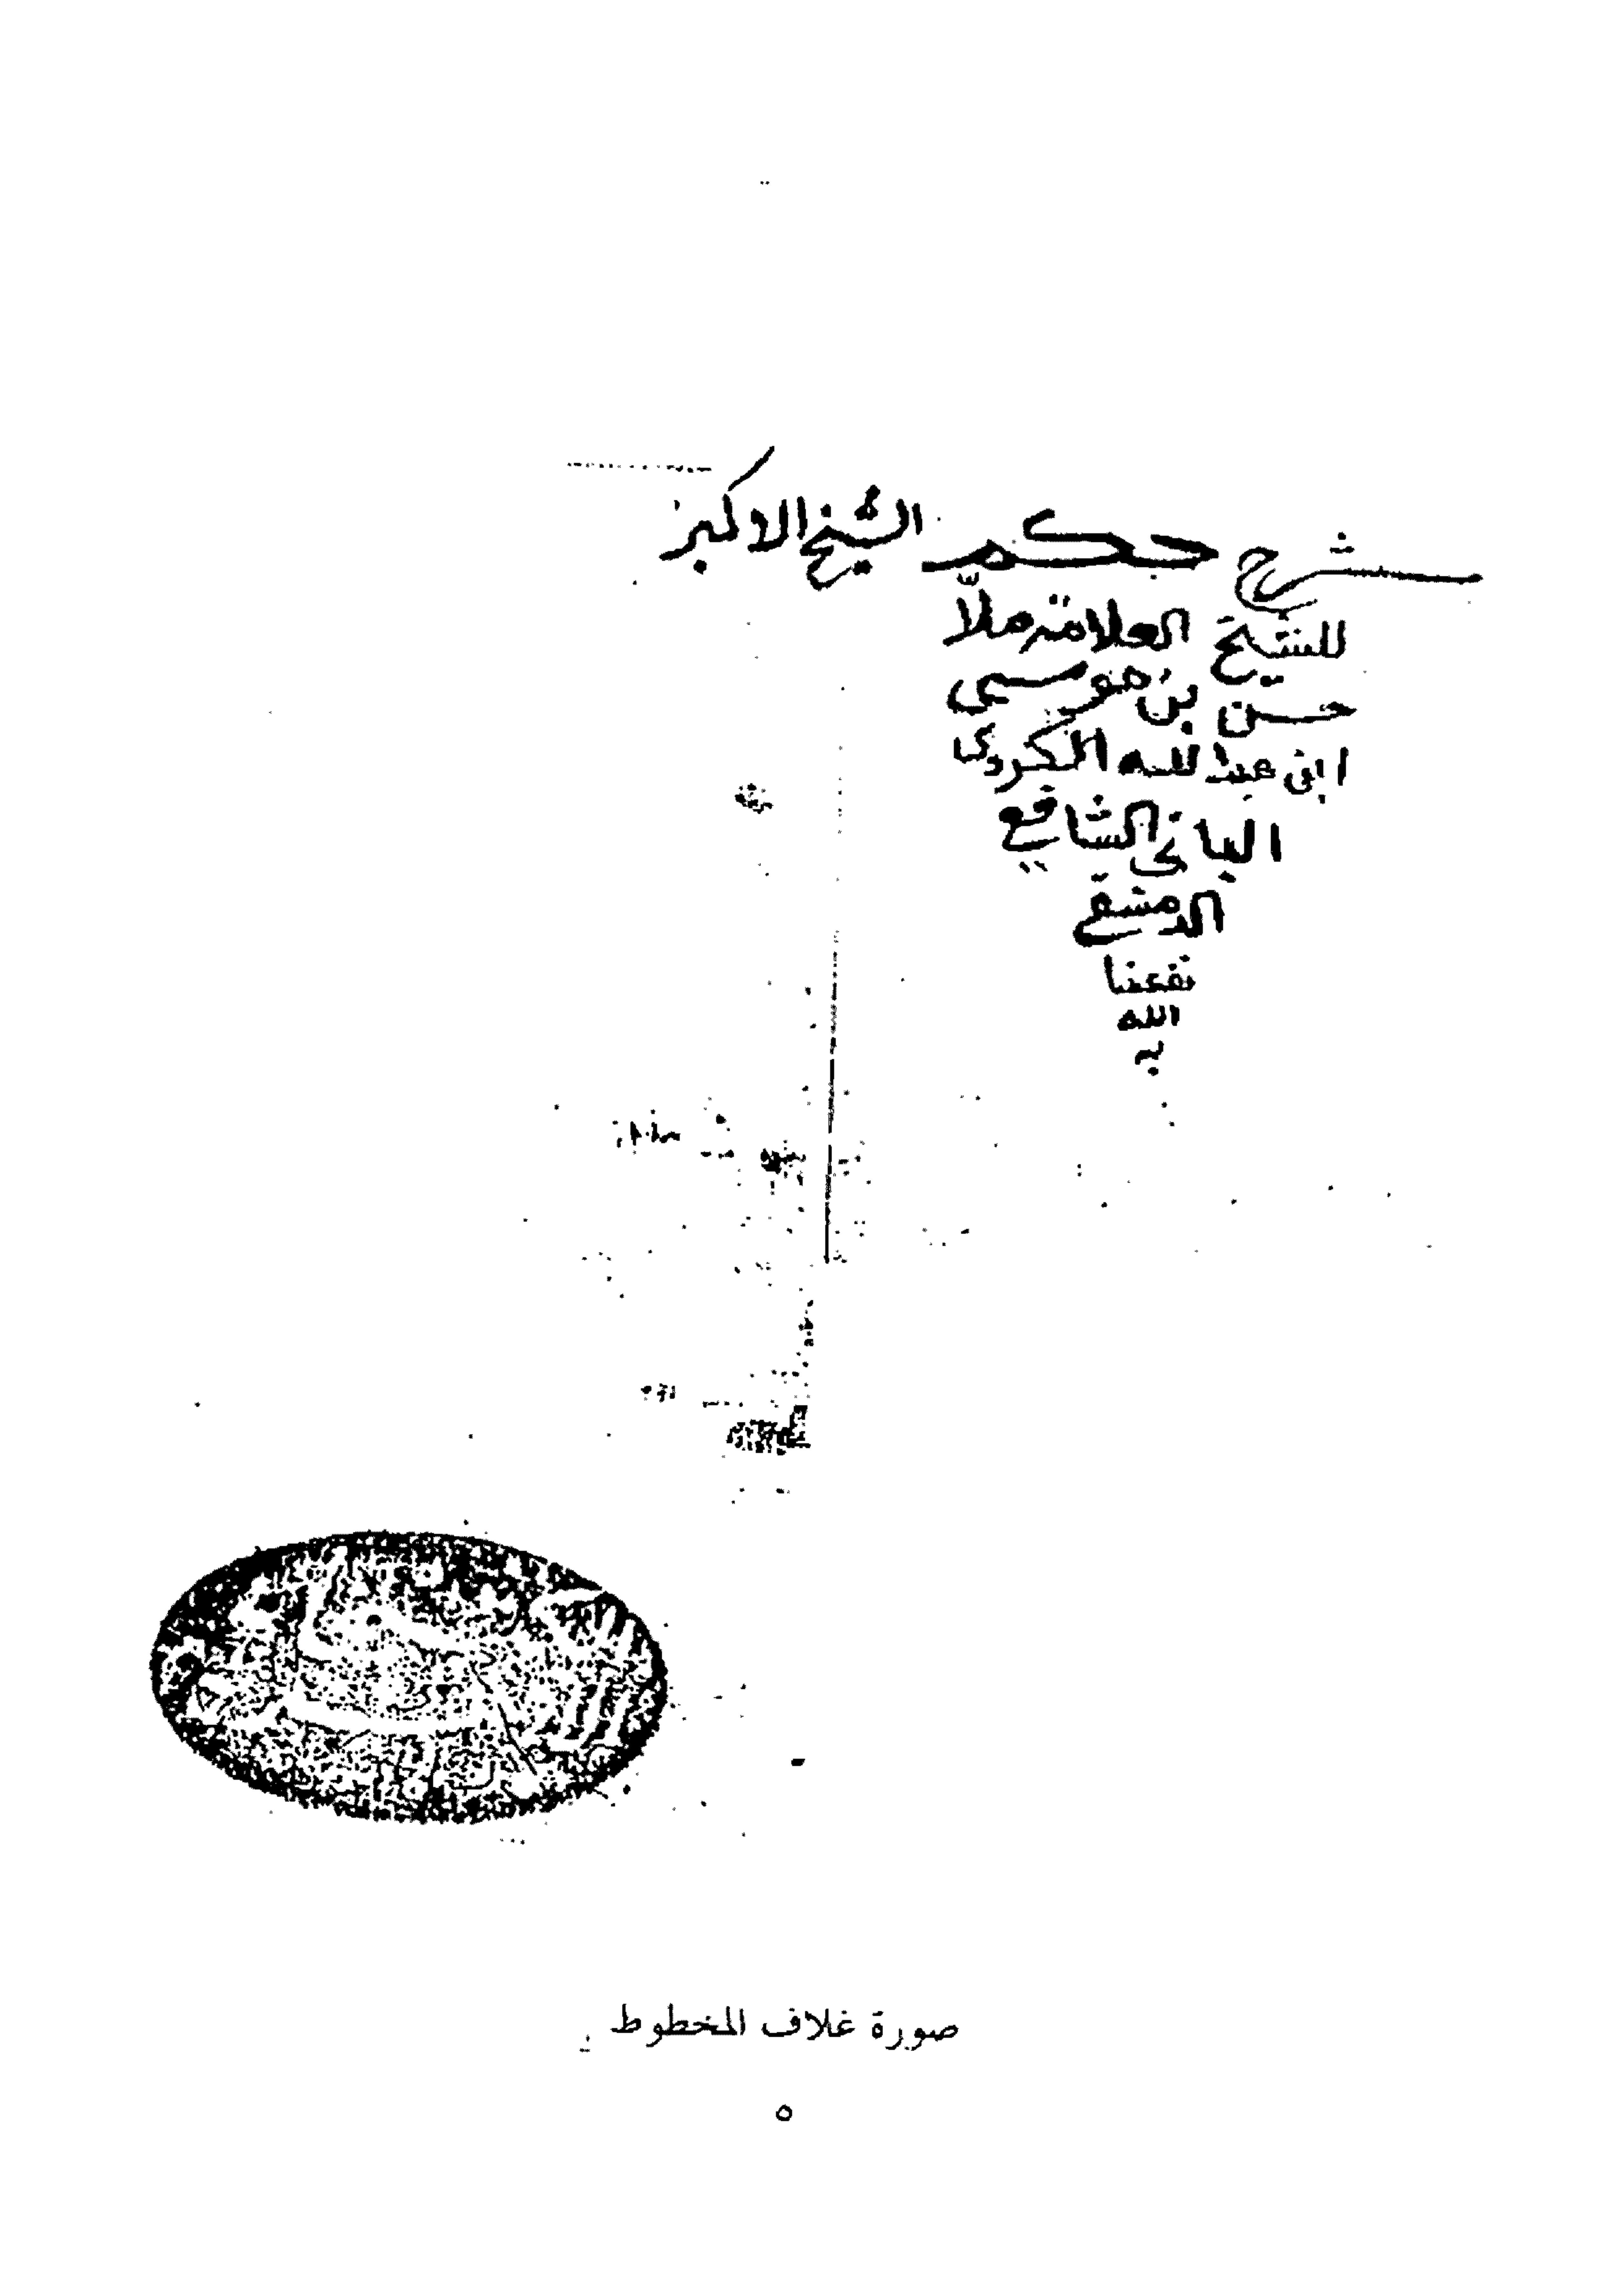 شرح حكم الشيخ الاكبر
للشيخ العلامة ملّا
حسن بن موسى
ابن عبد الله الكردي
الباني الشافعي
الدمشقي
نفعنا
الله
به
صورة غلاف المخطوط
٥